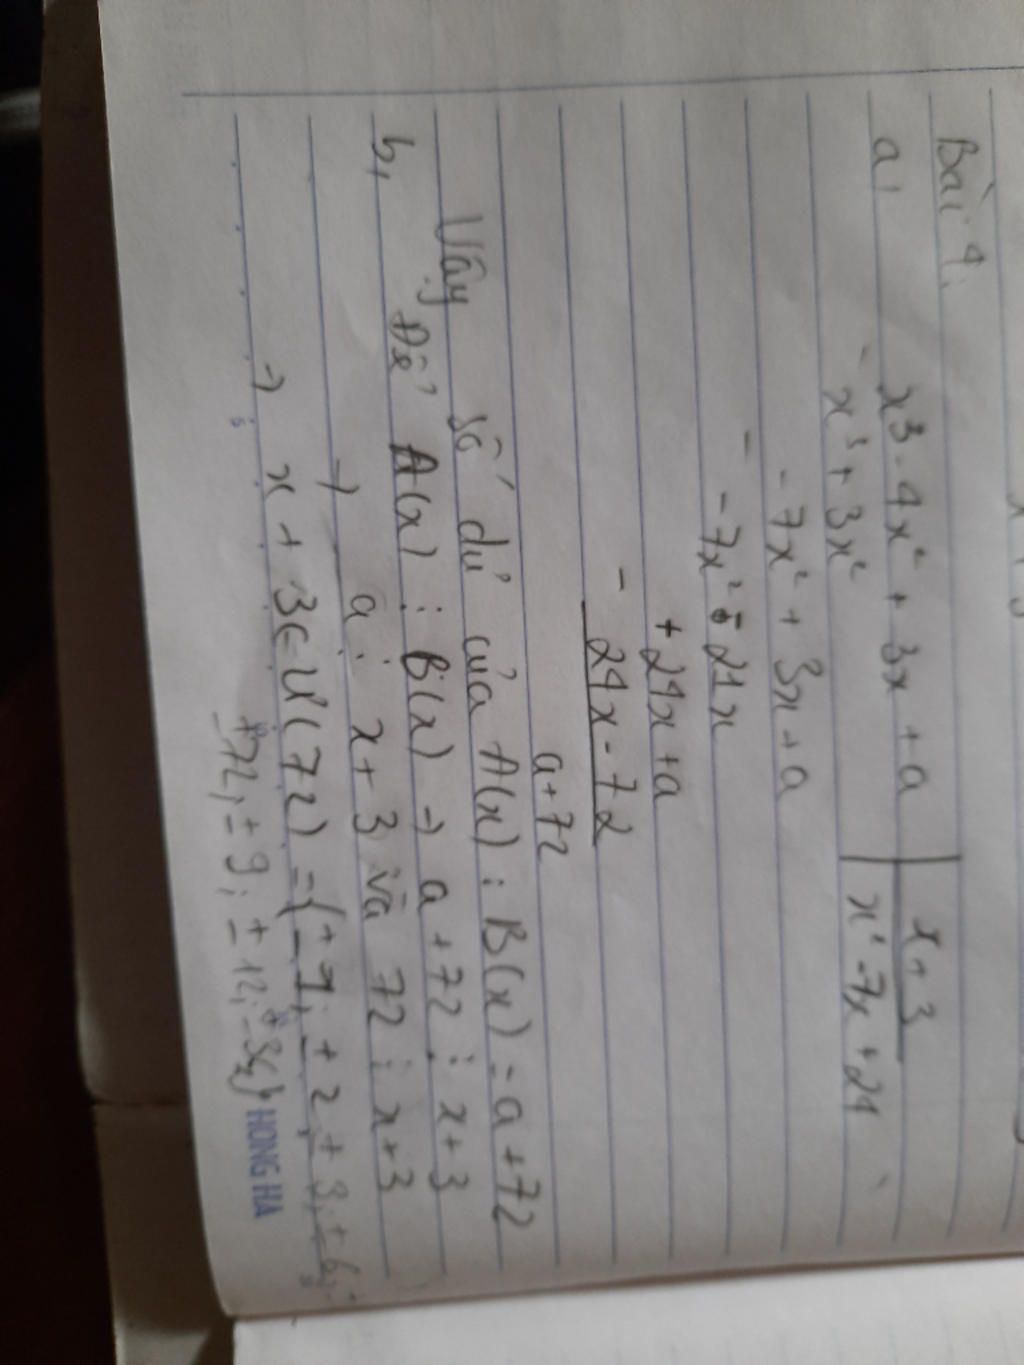 Bài 4:
a, x³ - 4x² + 3x + a | x + 3
- x³ + 3x² | x² - 7x + 24
- 7x² + 3x + a
- - 7x² - 21x
+ 24x + a
- 24x - 72
a + 72
Vậy số dư của A(x) : B(x) = a + 72
b, Để A(x) ⋮ B(x) → a + 72 ⋮ x + 3
→ a ⋮ x + 3 và 72 ⋮ x + 3
→ x + 3 ∈ Ư(72) = {± 1; ± 2; ± 3; ± 6;
± 72; ± 9; ± 12; ± 36}
HONG HA